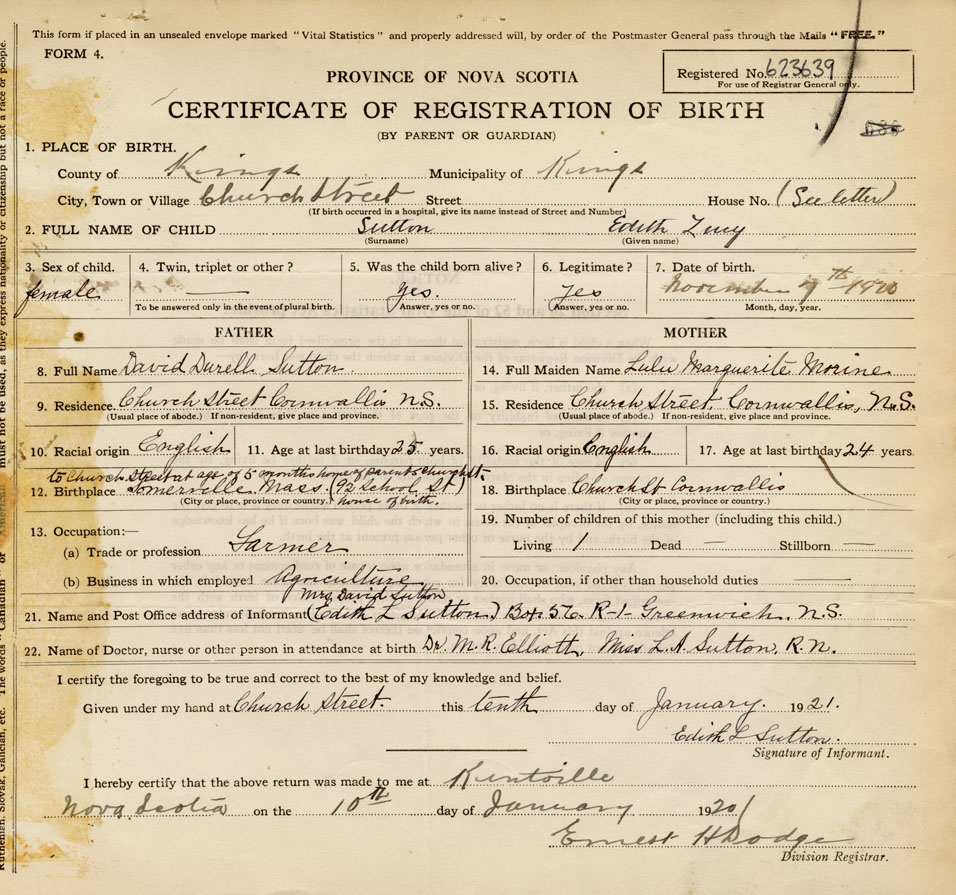 This form if placed in an unsealed envelope marked "Vital Statistics" and properly addressed will, by order of the Postmaster General pass through the Mails "FREE."
FORM 4.
PROVINCE OF NOVA SCOTIA
Registered No. 623639
For use of Registrar General only.
CERTIFICATE OF REGISTRATION OF BIRTH
(BY PARENT OR GUARDIAN)
1. PLACE OF BIRTH.
County of Kings Municipality of Kings
City, Town or Village Church Street Street House No. (See letter)
(If birth occurred in a hospital, give its name instead of Street and Number)
2. FULL NAME OF CHILD Sutton Edith Lucy
(Surname) (Given name)
3. Sex of child. 4. Twin, triplet or other? 5. Was the child born alive? 6. Legitimate? 7. Date of birth.
female — yes. yes November 7th 1920
To be answered only in the event of plural birth. Answer, yes or no. Answer, yes or no. Month, day, year.
FATHER MOTHER
8. Full Name David Durell Sutton. 14. Full Maiden Name Lulu Marguerite Morine
9. Residence Church Street Cornwallis N.S. 15. Residence Church Street, Cornwallis, N.S.
(Usual place of abode.) If non-resident, give place and province. (Usual place of abode.) If non-resident, give place and province.
10. Racial origin English 11. Age at last birthday 25 years. 16. Racial origin English 17. Age at last birthday 24 years
to Church Street at age of 5 months home of parents Church St.
12. Birthplace Somerville Mass (92 School St.) 18. Birthplace Church St Cornwallis
(City or place, province or country.) house of birth. (City or place, province or country.)
13. Occupation:— 19. Number of children of this mother (including this child.)
(a) Trade or profession Farmer Living 1 Dead — Stillborn —
(b) Business in which employed Agriculture 20. Occupation, if other than household duties —
Mrs. David Sutton
21. Name and Post Office address of Informant (Edith L Sutton.) Box 56 R-1- Greenwich, N.S.
22. Name of Doctor, nurse or other person in attendance at birth Dr. M.R. Elliott, Miss L.A. Sutton, R.N.
I certify the foregoing to be true and correct to the best of my knowledge and belief.
Given under my hand at Church Street. this tenth day of January. 1921.
Edith L Sutton.
Signature of Informant.
I hereby certify that the above return was made to me at Kentville
Nova Scotia on the 10th day of January 1920/
Ernest H Dodge
Division Registrar.
Ruthenian, Slovak, Galician, etc. The words "Canadian" or "American" must not be used, as they express nationality or citizenship but not a race or people.